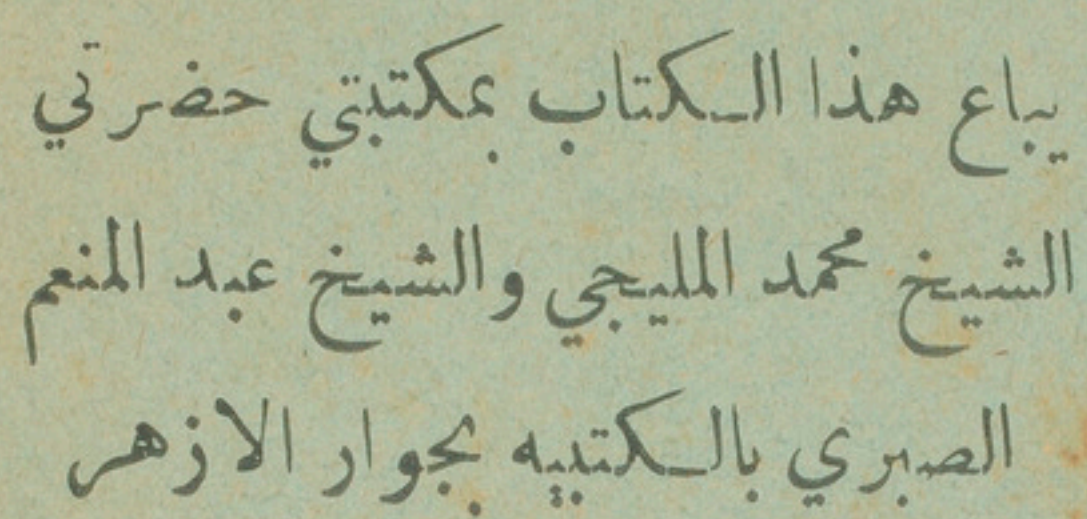 يباع هذا الكتاب بمكتبتي حضرتي
الشيخ محمد المليجي والشيخ عبد المنعم
الصبري بالكتبيه بجوار الازهر